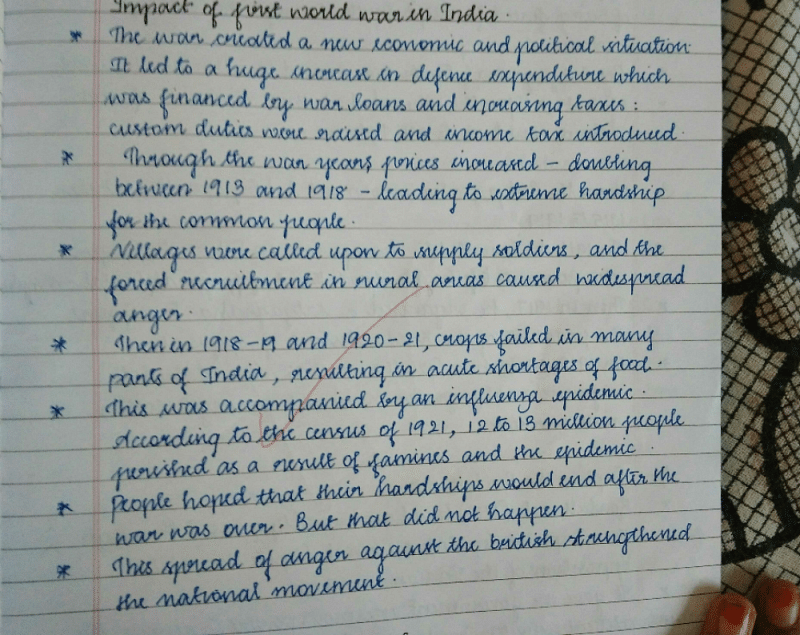 Impact of first world war in India.
* The war created a new economic and political situation.
It led to a huge increase in defence expenditure which
was financed by war loans and increasing taxes:
custom duties were raised and income tax introduced.
* Through the war years prices increased – doubling
between 1913 and 1918 – leading to extreme hardship
for the common people.
* Villages were called upon to supply soldiers, and the
forced recruitment in rural areas caused widespread
anger.
* Then in 1918–19 and 1920–21, crops failed in many
parts of India, resulting in acute shortages of food.
* This was accompanied by an influenza epidemic.
According to the census of 1921, 12 to 13 million people
perished as a result of famines and the epidemic.
* People hoped that their hardships would end after the
war was over. But that did not happen.
* This spread of anger against the british strengthened
the national movement.